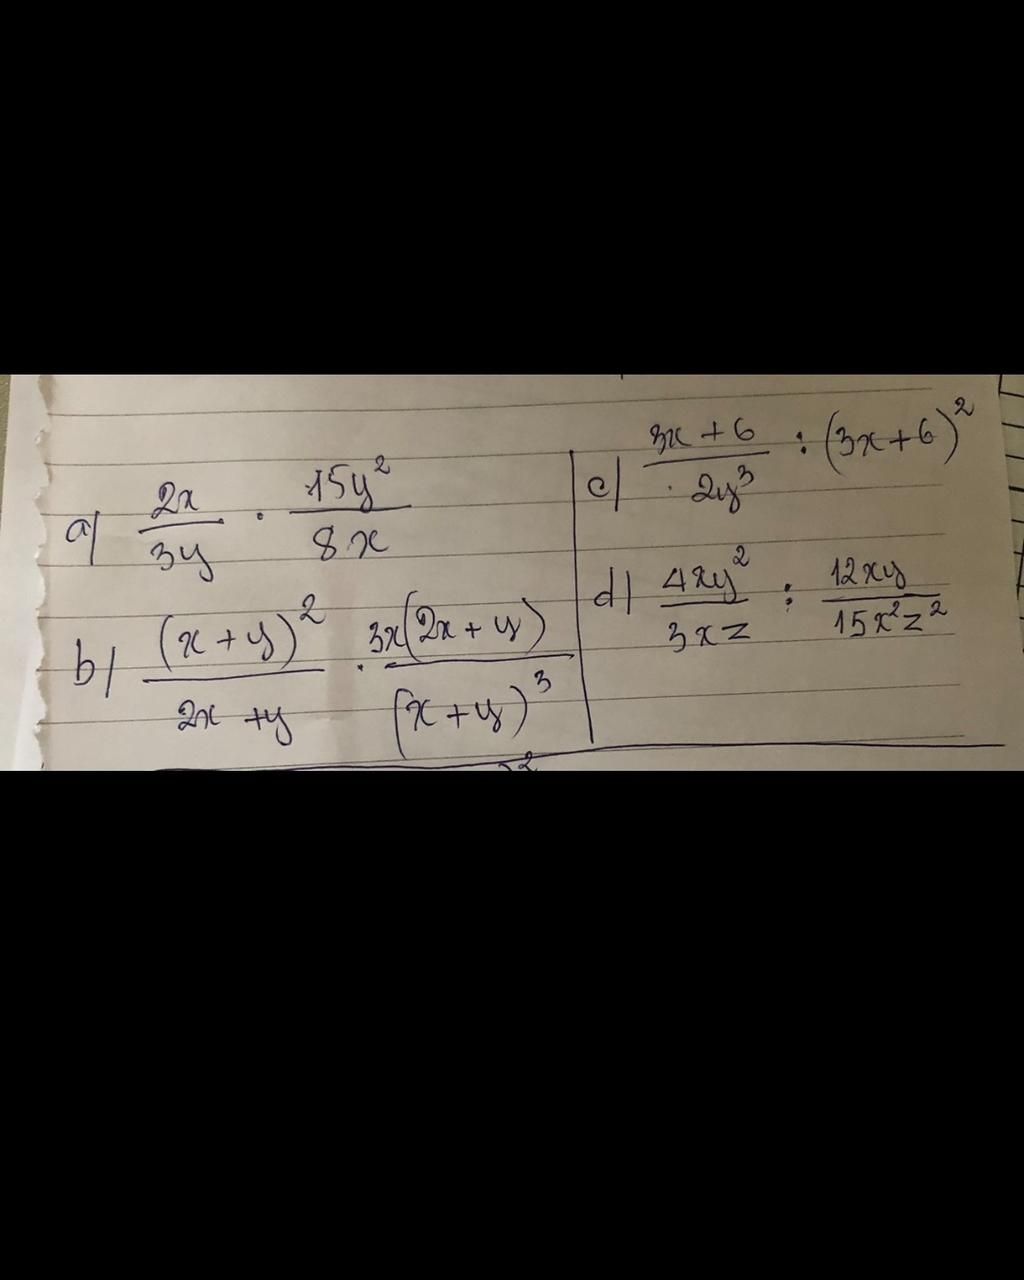 a) 2x/3y · 15y²/8x
b) (x+y)²/2x+y · 3x(2x+y)/(x+y)³
c) 3x+6/2y³ : (3x+6)²
d) 4xy²/3xz : 12xy/15x²z²